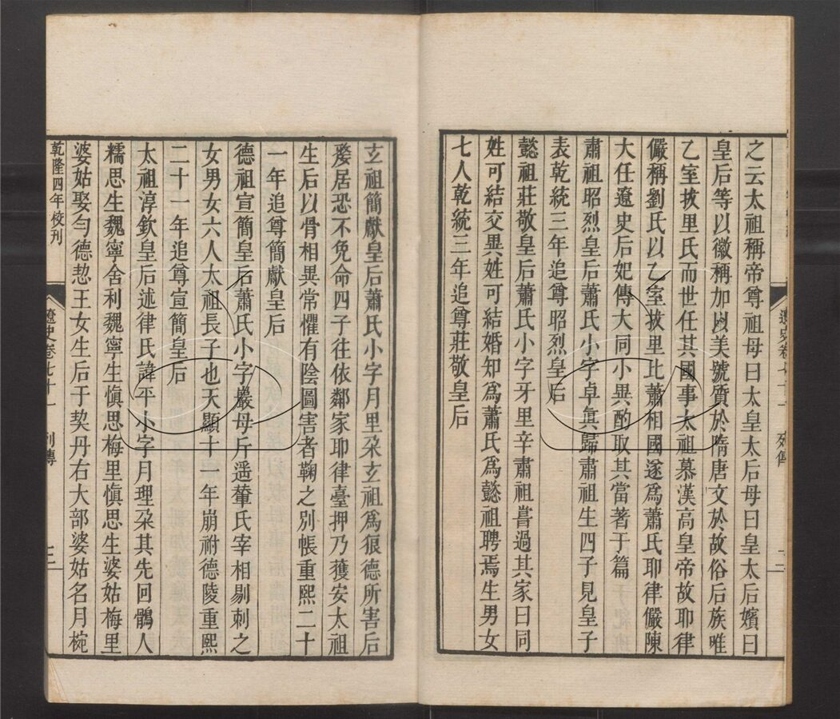 之云太祖稱帝尊祖母曰太皇太后母曰皇太后嬪曰
皇后等以徽稱加以美號質於隋唐文於故俗后族唯
乙室拔里氏而世任其國事太祖慕漢高皇帝故耶律
儼稱劉氏以乙室拔里比蕭相國遂爲蕭氏耶律儼陳
大任遼史后妃傳大同小異酌取其當著于篇
肅祖昭烈皇后蕭氏小字卓眞歸肅祖生四子見皇子
表乾統三年追尊昭烈皇后
懿祖莊敬皇后蕭氏小字牙里辛肅祖嘗過其家曰同
姓可結交異姓可結婚知爲蕭氏爲懿祖聘焉生男女
七人乾統三年追尊莊敬皇后
玄祖簡獻皇后蕭氏小字月里朶玄祖爲狠德所害后
嫠居恐不免命四子往依鄰家耶律臺押乃獲安太祖
生后以骨相異常懼有陰圖害者鞠之別帳重熙二十
一年追尊簡獻皇后
德祖宣簡皇后蕭氏小字巖母斤遥輦氏宰相剔剌之
女男女六人太祖長子也天顯十一年崩祔德陵重熙
二十一年追尊宣簡皇后
太祖淳欽皇后述律氏諱平小字月理朶其先回鶻人
糯思生魏寧舍利魏寧生愼思梅里愼思生婆姑梅里
婆姑娶勻德恝王女生后于契丹右大部婆姑名月椀
乾隆四年校刊
遼史卷七十一
列傳